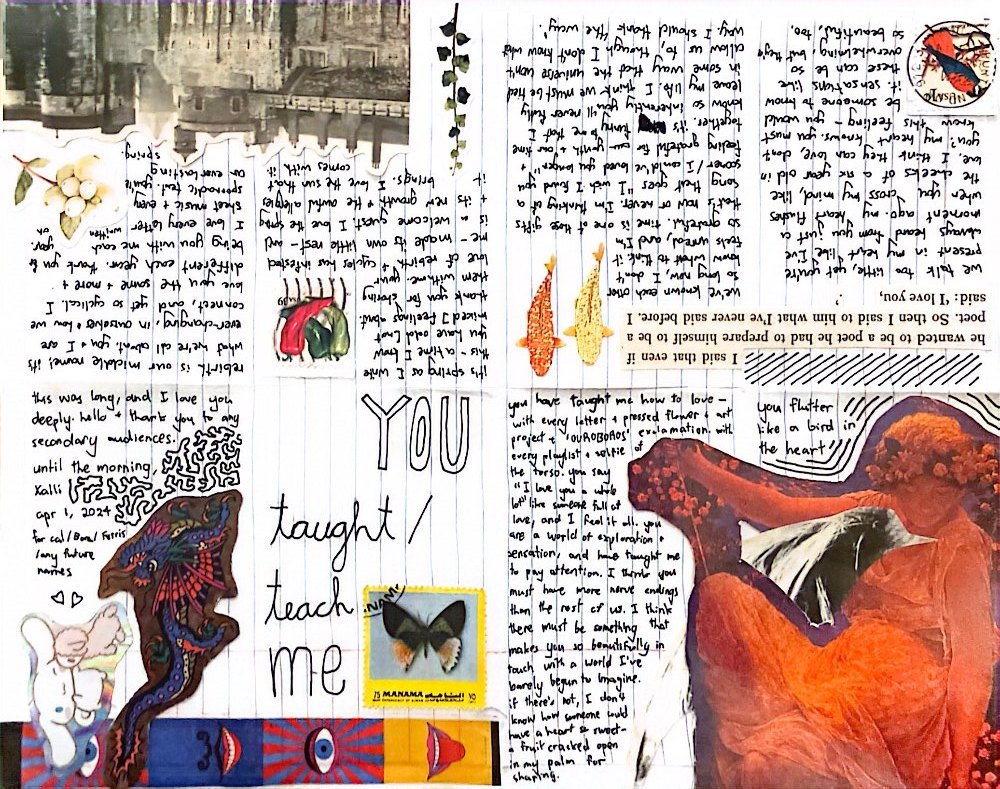 YOU
taught/
teach
me
MANAMA
75 MANAMA
you have taught me how to love –
with every letter + pressed flower + art
project + 'OUROBOROS' explanation. with
every playlist + selfie of
the torso. you say
"I love you a whole
lot" like someone full of
love, and I feel it all. you
are a world of exploration +
sensation, and have taught me
to pay attention. I think you
must have more nerve endings
than the rest of us. I think
there must be something that
makes you so beautifully in
touch with a world I've
barely begun to imagine.
if there's not, I don't
know how someone could
have a heart so sweet –
a fruit cracked open
in my palm for
sharing.
you flutter
like a bird in
the heart
I said that even if
he wanted to be a poet he had to prepare himself to be a
poet. So then I said to him what I've never said before. I
said: 'I love you,
we talk too little, yet you're
present in my heart like I've
always heard from you just a
moment ago. my heart flushes
when you cross my mind, like
the cheeks of a six year old in
love. I think they can love, don't
you? my heart knows. you must
know this feeling – you would
be someone to know
it. sensations like
these can be so
overwhelming but they're
so beautiful, too.
we've known each other
so long now, I don't
know what to think. it
feels unreal, and I'm
so grateful. time is one of those gifts
that's now or never. I'm thinking of a
song that goes "I wish I found you
sooner / I could've loved you longer" +
feeling grateful for our youth + our time
together. it's funny to me that I
know so inherently you'll never fully
leave my life. I think we must be tied
in some way that the universe won't
allow us to, though I don't know what
way. I should thank 'the way.'
it's spring as I write
this. a time I know
you have odd (and
mixed) feelings about.
thank you for sharing
them with me. your
love of rebirth + cycles has infested
me – made its own little nest – and
is a welcome guest. I love the spring
+ its new growth + the awful allergies
it brings. I love the sun that
comes with it.
rebirth is our middle name; it's
what we're all about. you + I are
ever-changing, in ourselves + how we
connect, and yet so cyclical. I
love you the same + more +
different each year. thank you for
being you with me each year.
I love every letter written on
sheet music + every
sporadic text. you're
an everlasting
spring.
this was long, and I love you
deeply. hello + thank you to any
secondary audiences.
until the morning,
Xalli
apr 1, 2024
for cal/Bora/Ferris
/any future
names